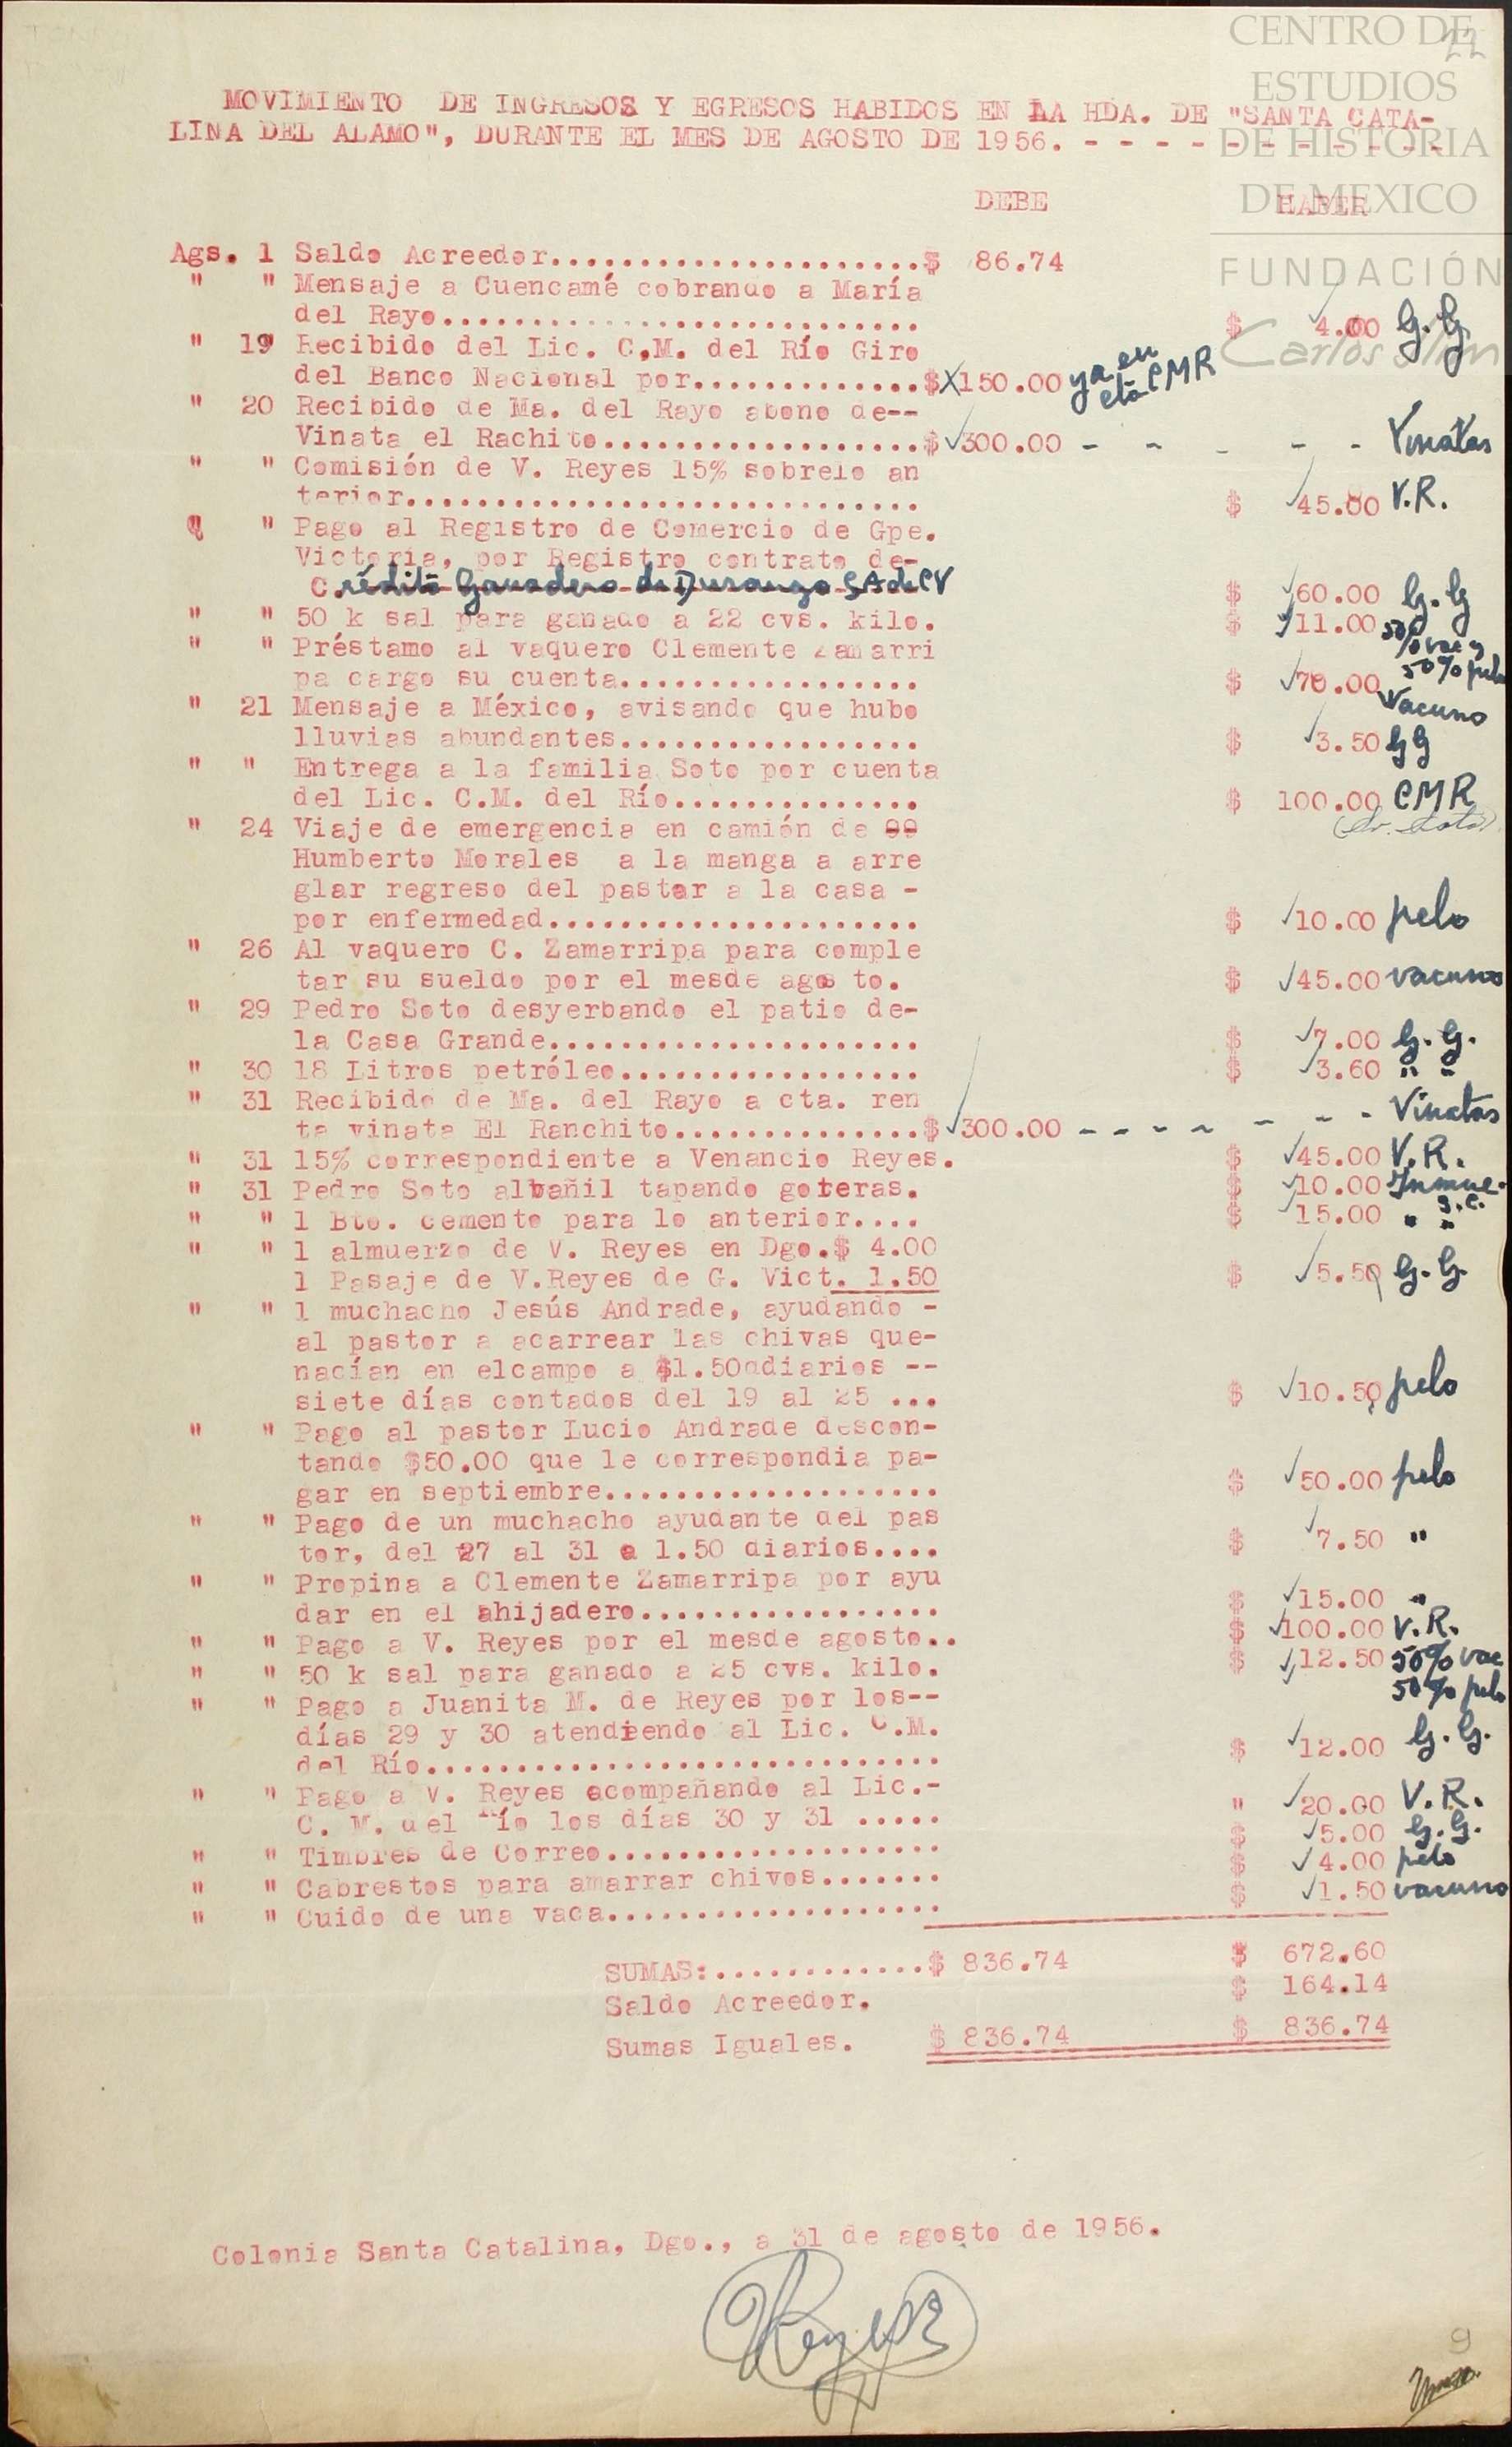 CENTRO DE
ESTUDIOS
DE HISTORIA
DE MEXICO
FUNDACIÓN
Carlos Slim
22
MOVIMIENTO DE INGRESOS Y EGRESOS HABIDOS EN LA HDA. DE "SANTA CATA-
LINA DEL ALAMO", DURANTE EL MES DE AGOSTO DE 1956. - - - - - - - - - - -
DEBE HABER
Ags. 1 Saldo Acreedor.....................$ 86.74
" " Mensaje a Cuencamé cobrando a María
del Rayo........................... $ 4.00 G.G
" 19 Recibido del Lic. C.M. del Río Giro
del Banco Nacional por.............$X150.00 ya en cta CMR
" 20 Recibido de Ma. del Rayo abono de--
Vinata el Rachito..................$ 300.00 - - - - - Vinatas
" " Comisión de V. Reyes 15% sobrelo an
terior............................. $ 45.00 V.R.
" " Pago al Registro de Comercio de Gpe.
Victoria, por Registro contrato de-
Crédito Ganadero de Durango SA de CV $ 60.00 G.G
" " 50 k sal para ganado a 22 cvs. kilo. $ 11.00 50% vac y
" " Préstamo al vaquero Clemente Zamarri 50% pelo
pa cargo su cuenta................. $ 70.00 Vacuno
" 21 Mensaje a México, avisando que hubo
lluvias abundantes................. $ 3.50 GG
" " Entrega a la familia Soto por cuenta
del Lic. C.M. del Río.............. $ 100.00 CMR
" 24 Viaje de emergencia en camión de (Sr. Soto)
Humberto Morales a la manga a arre
glar regreso del pastor a la casa -
por enfermedad..................... $ 10.00 pelo
" 26 Al vaquero C. Zamarripa para comple
tar su sueldo por el mesde agos to. $ 45.00 vacuno
" 29 Pedro Soto desyerbando el patio de-
la Casa Grande..................... $ 7.00 G.G.
" 30 18 Litros petróleo................. $ 3.60 " "
" 31 Recibido de Ma. del Rayo a cta. ren
ta vinata El Ranchito..............$ 300.00 - - - - - - - Vinatas
" 31 15% correspondiente a Venancio Reyes. $ 45.00 V.R.
" 31 Pedro Soto albañil tapando goteras. $ 10.00 Inmue-
" " 1 Bto. cemento para lo anterior.... $ 15.00 " "
" " 1 almuerzo de V. Reyes en Dgo.$ 4.00
1 Pasaje de V.Reyes de G. Vict. 1.50 $ 5.50 G.G.
" " 1 muchacho Jesús Andrade, ayudando -
al pastor a acarrear las chivas que-
nacían en elcampo a $1.50adiarios --
siete días contados del 19 al 25 ... $ 10.50 pelo
" " Pago al pastor Lucio Andrade descon-
tando $50.00 que le correspondia pa-
gar en septiembre................... $ 50.00 pelo
" " Pago de un muchacho ayudante del pas
tor, del 27 al 31 a 1.50 diarios.... $ 7.50 "
" " Propina a Clemente Zamarripa por ayu
dar en el ahijadero................. $ 15.00 "
" " Pago a V. Reyes por el mesde agosto.. $ 100.00 V.R.
" " 50 k sal para ganado a 25 cvs. kilo. $ 12.50 50% vac
" " Pago a Juanita M. de Reyes por los-- 50% pelo
días 29 y 30 atendiendo al Lic. C.M.
del Río............................. $ 12.00 G.G.
" " Pago a V. Reyes acompañando al Lic.-
C. M. del Río los días 30 y 31 ..... " 20.00 V.R.
" " Timbres de Correo................... $ 5.00 G.G.
" " Cabrestos para amarrar chivos....... $ 4.00 pelo
" " Cuido de una vaca................... $ 1.50 vacuno
SUMAS:............$ 836.74 $ 672.60
Saldo Acreedor. $ 164.14
Sumas Iguales. $ 836.74 $ 836.74
Colonia Santa Catalina, Dgo., a 31 de agosto de 1956.
VReyes
9